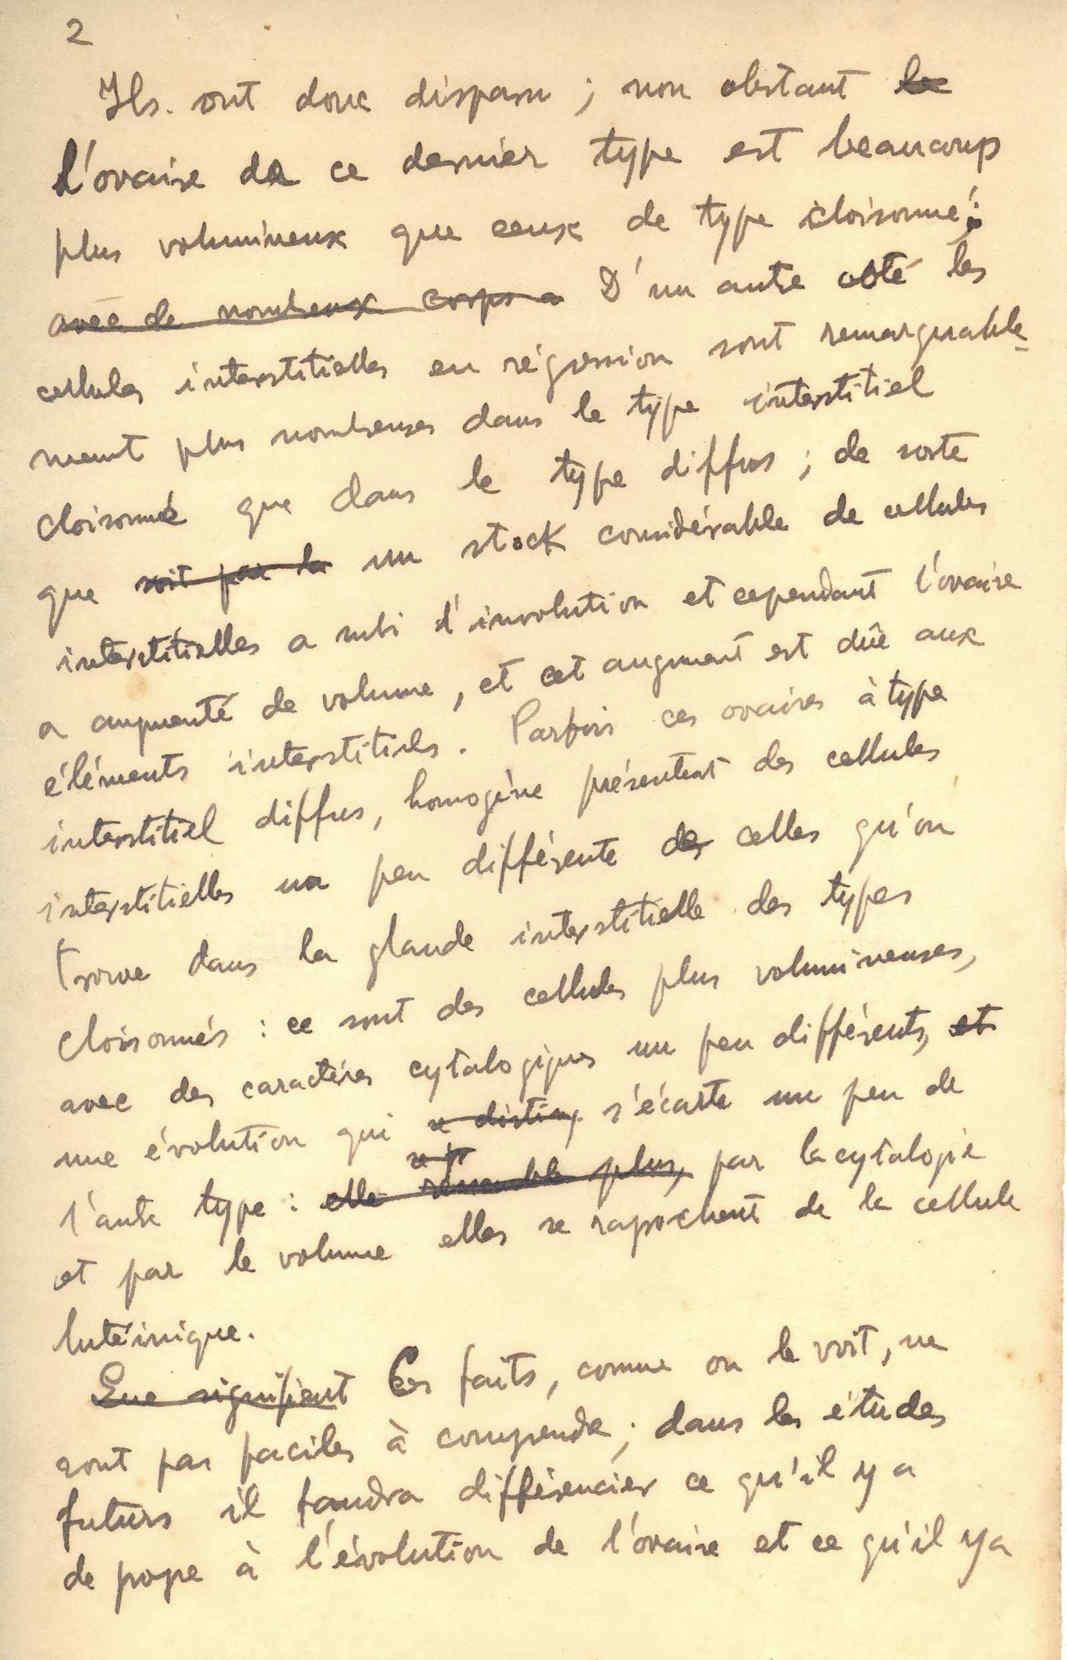 2
Ils. ont donc disparu ; non obstant le
l'ovaire de ce dernier type est beaucoup
plus volumineux que ceux de type cloisonné:
avec de nombreux corps a D'un autre coté les
cellules interstitielles en régression sont remarquable-
ment plus nombreuses dans le type interstitiel
cloisonné que dans le type diffus ; de sorte
que soit par la un stock considérable de cellules
interstitielles a subi l'involution et cependant l'ovaire
a augmenté de volume, et cet augment est dûe aux
éléments interstitiels. Parfois ces ovaires à type
interstitiel diffus, homogène présentent des cellules
interstitielles un peu différente de celles qu'on
trouve dans la glande interstitielle des types
cloisonnés : ce sont des cellules plus volumineuses,
avec des caractères cytalogiques un peu différents, et
une évolution qui se disting s'écarte un peu de
l'autre type : elle ressemble plus, par la cytalogie
et par le volume elles se raprochent de la cellule
lutéinique.
Que signifient Ces faits, comme on le voit, ne
sont pas faciles à comprendre ; dans les études
futurs il faudra différencier ce qu'il y a
de propre à l'évolution de l'ovaire et ce qu'il y a